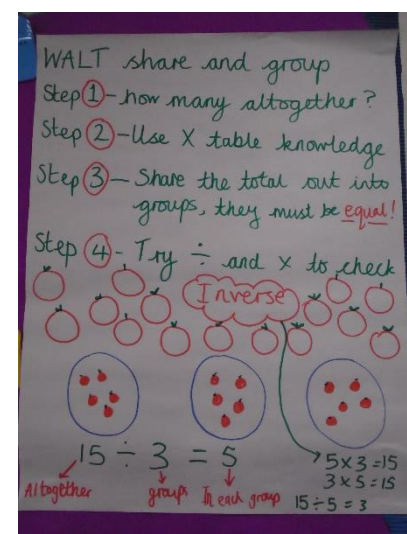 WALT share and group
Step 1 - how many altogether?
Step 2 - Use X table knowledge
Step 3 - Share the total out into
groups, they must be equal!
Step 4 - Try ÷ and x to check
Inverse
15 ÷ 3 = 5
Altogether groups In each group
5 x 3 = 15
3 x 5 = 15
15 ÷ 5 = 3